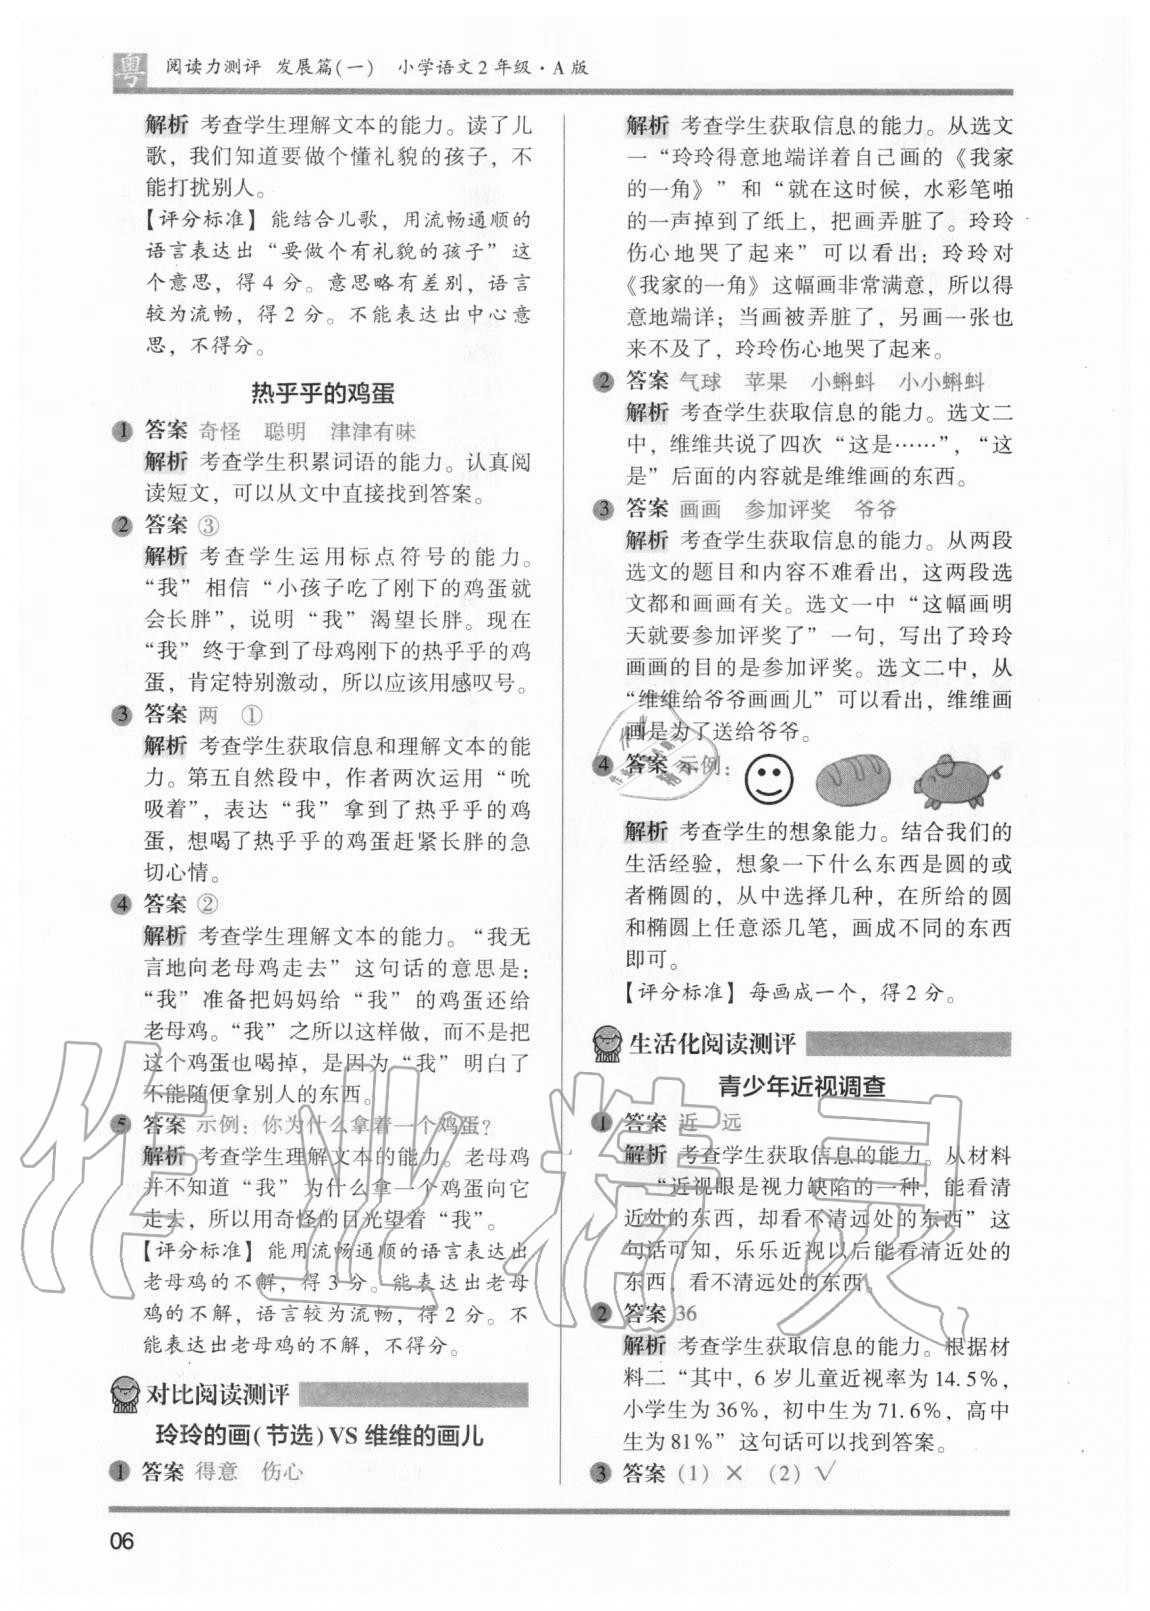 粤 阅读力测评 发展篇(一) 小学语文2年级·A版
解析 考查学生理解文本的能力。读了儿
歌，我们知道要做个懂礼貌的孩子，不
能打扰别人。
【评分标准】能结合儿歌，用流畅通顺的
语言表达出“要做个有礼貌的孩子”这
个意思，得4分。意思略有差别，语言
较为流畅，得2分。不能表达出中心意
思，不得分。
热乎乎的鸡蛋
1 答案 奇怪 聪明 津津有味
解析 考查学生积累词语的能力。认真阅
读短文，可以从文中直接找到答案。
2 答案 ③
解析 考查学生运用标点符号的能力。
“我”相信“小孩子吃了刚下的鸡蛋就
会长胖”，说明“我”渴望长胖。现在
“我”终于拿到了母鸡刚下的热乎乎的鸡
蛋，肯定特别激动，所以应该用感叹号。
3 答案 两 ①
解析 考查学生获取信息和理解文本的能
力。第五自然段中，作者两次运用“吮
吸着”，表达“我”拿到了热乎乎的鸡
蛋，想喝了热乎乎的鸡蛋赶紧长胖的急
切心情。
4 答案 ②
解析 考查学生理解文本的能力。“我无
言地向老母鸡走去”这句话的意思是：
“我”准备把妈妈给“我”的鸡蛋还给
老母鸡。“我”之所以这样做，而不是把
这个鸡蛋也喝掉，是因为“我”明白了
不能随便拿别人的东西。
5 答案 示例：你为什么拿着一个鸡蛋？
解析 考查学生理解文本的能力。老母鸡
并不知道“我”为什么拿一个鸡蛋向它
走去，所以用奇怪的目光望着“我”。
【评分标准】能用流畅通顺的语言表达出
老母鸡的不解，得3分。能表达出老母
鸡的不解，语言较为流畅，得2分。不
能表达出老母鸡的不解，不得分。
对比阅读测评
玲玲的画(节选)VS维维的画儿
1 答案 得意 伤心
06
解析 考查学生获取信息的能力。从选文
一“玲玲得意地端详着自己画的《我家
的一角》”和“就在这时候，水彩笔啪
的一声掉到了纸上，把画弄脏了。玲玲
伤心地哭了起来”可以看出：玲玲对
《我家的一角》这幅画非常满意，所以得
意地端详；当画被弄脏了，另画一张也
来不及了，玲玲伤心地哭了起来。
2 答案 气球 苹果 小蝌蚪 小小蝌蚪
解析 考查学生获取信息的能力。选文二
中，维维共说了四次“这是……”，“这
是”后面的内容就是维维画的东西。
3 答案 画画 参加评奖 爷爷
解析 考查学生获取信息的能力。从两段
选文的题目和内容不难看出，这两段选
文都和画画有关。选文一中“这幅画明
天就要参加评奖了”一句，写出了玲玲
画画的目的是参加评奖。选文二中，从
“维维给爷爷画画儿”可以看出，维维画
画是为了送给爷爷。
4 答案 示例：
解析 考查学生的想象能力。结合我们的
生活经验，想象一下什么东西是圆的或
者椭圆的，从中选择几种，在所给的圆
和椭圆上任意添几笔，画成不同的东西
即可。
【评分标准】每画成一个，得2分。
生活化阅读测评
青少年近视调查
1 答案 近 远
解析 考查学生获取信息的能力。从材料
一“近视眼是视力缺陷的一种，能看清
近处的东西，却看不清远处的东西”这
句话可知，乐乐近视以后能看清近处的
东西，看不清远处的东西。
2 答案 36
解析 考查学生获取信息的能力。根据材
料二“其中，6岁儿童近视率为14.5%，
小学生为36%，初中生为71.6%，高中
生为81%”这句话可以找到答案。
3 答案 (1)× (2)√
作业精灵